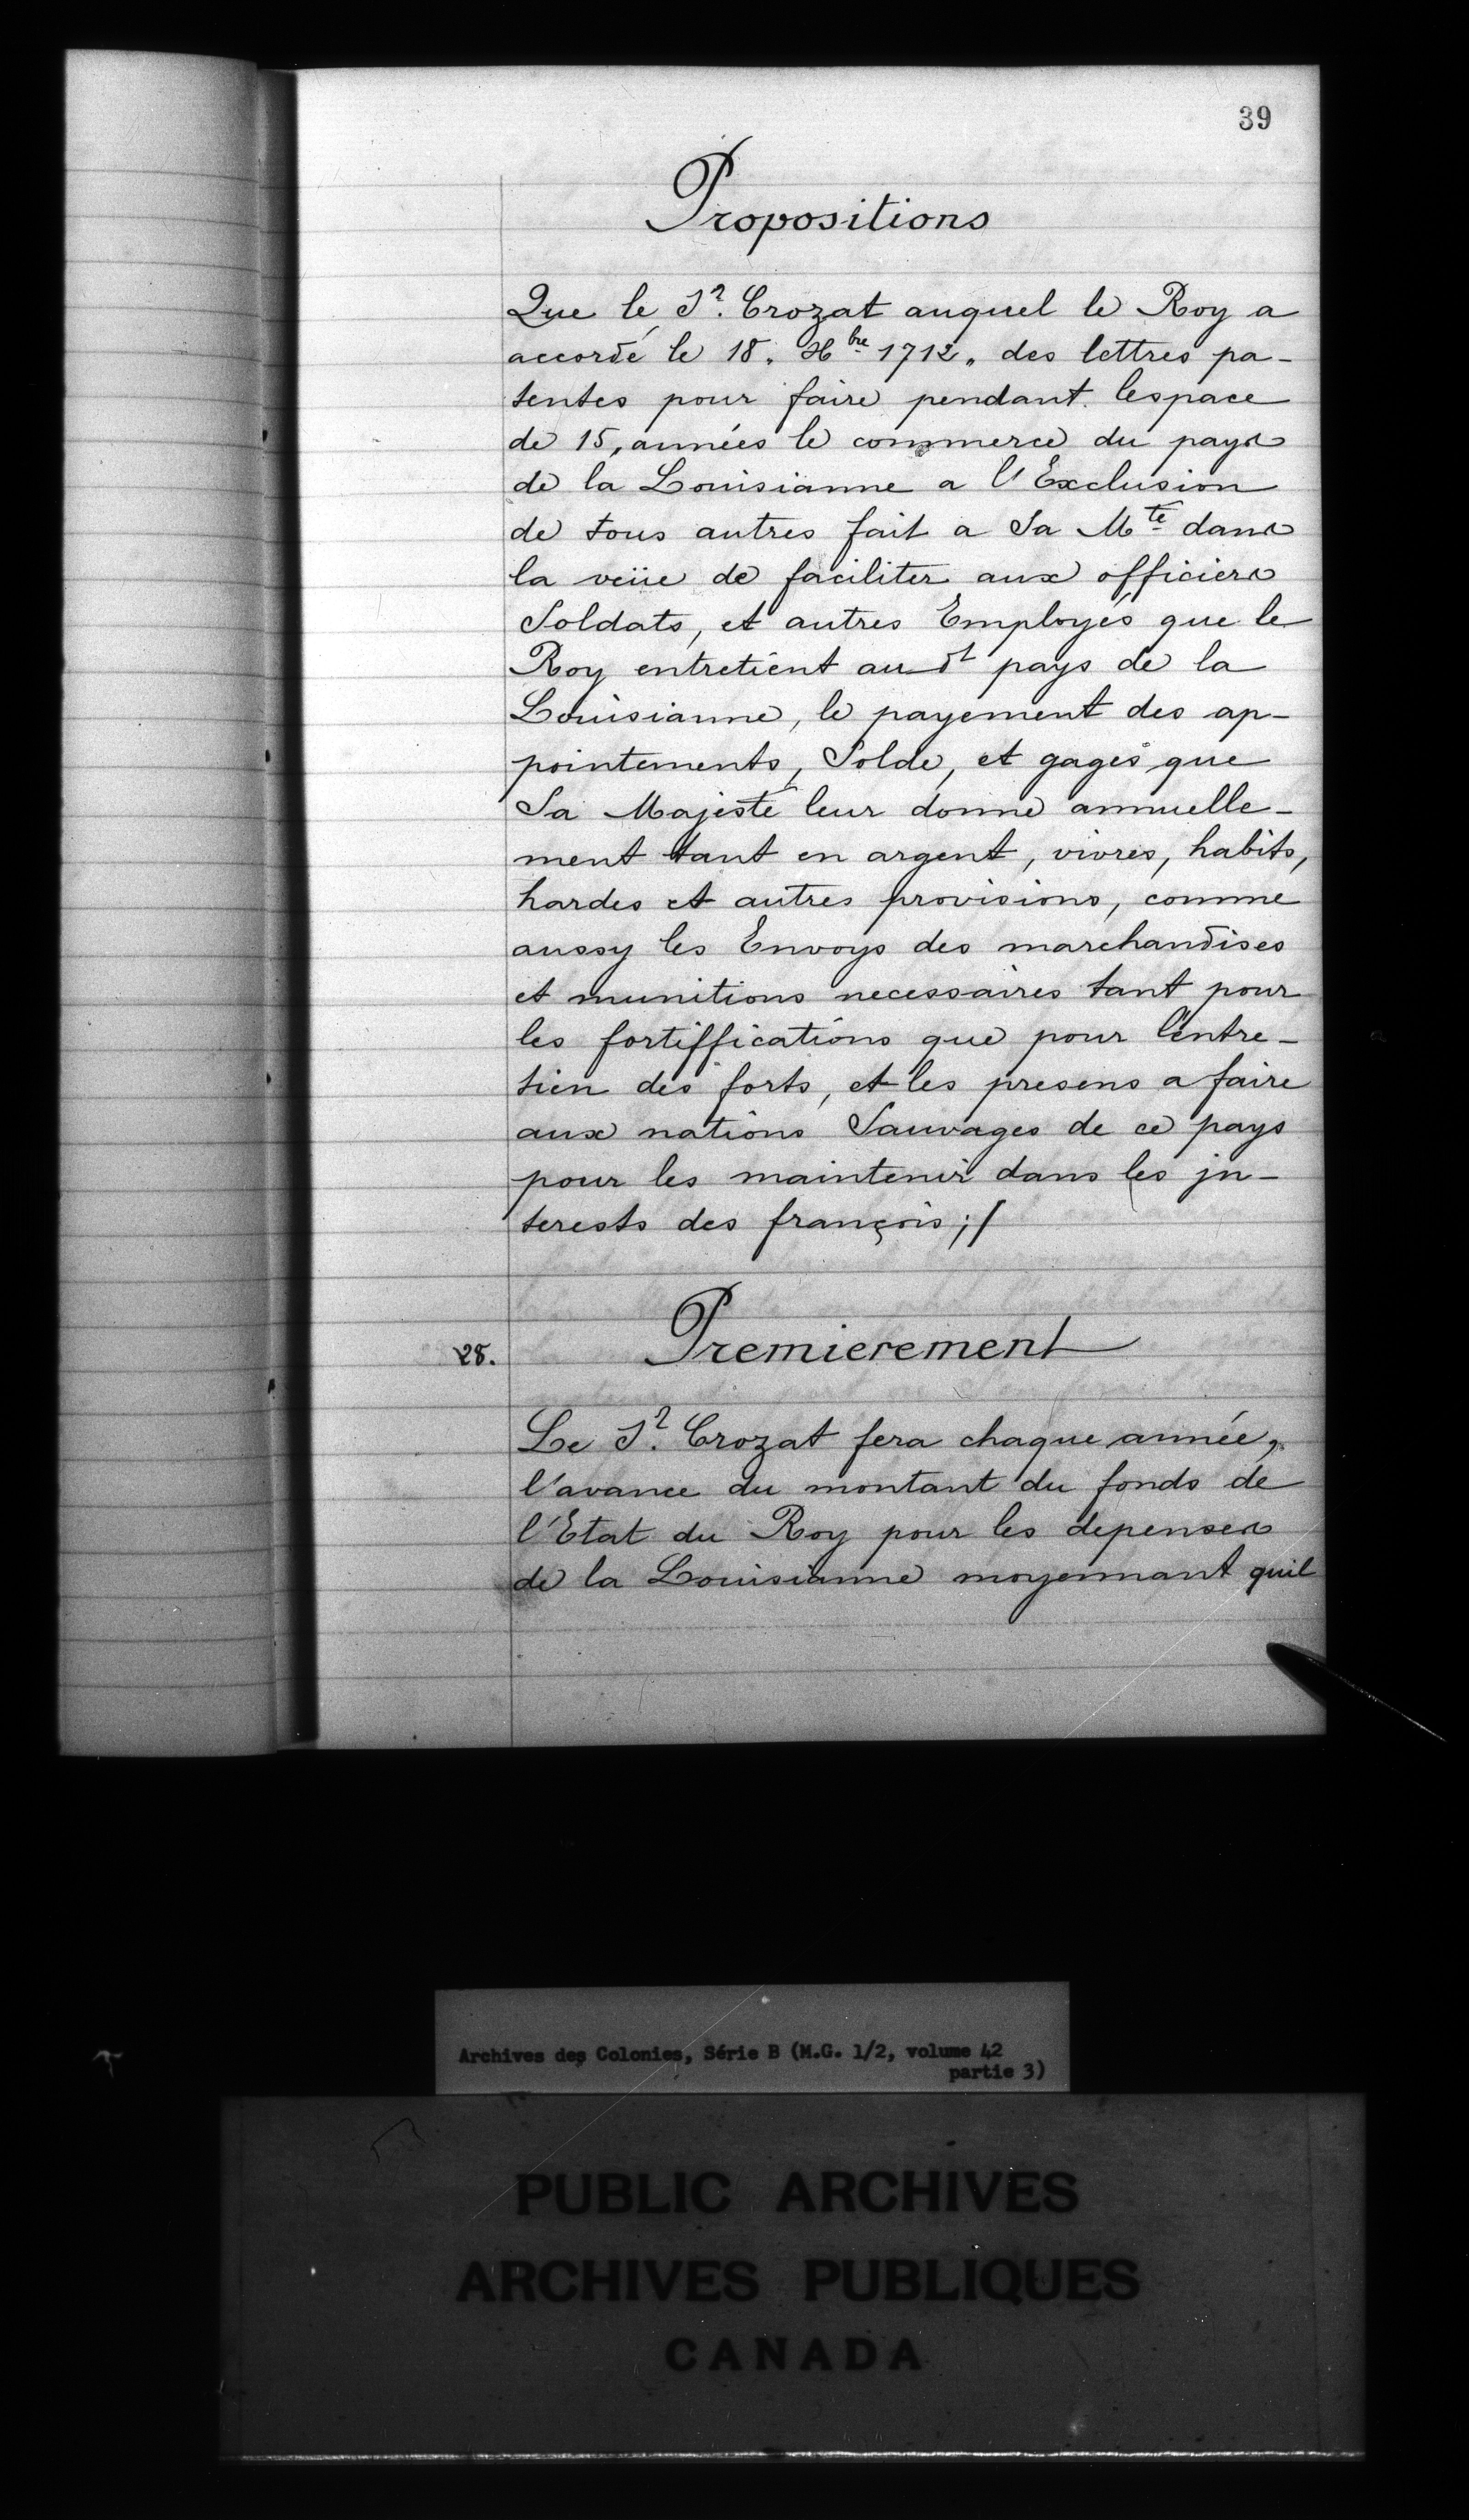 39
Propositions
Que le Sr. Crozat auquel le Roy a
accordé le 18. Xbre 1712. des lettres pa-
tentes pour faire pendant lespace
de 15, années le commerce du pays
de la Louisianne a l'Exclusion
de tous autres fait a Sa Mté dans
la veüe de faciliter aux officiers
Soldats, et autres Employés que le
Roy entretient au dt pays de la
Louisianne, le payement des ap-
pointements, Solde, et gages que
Sa Majesté leur donne annuelle-
ment tant en argent, vivres, habits,
hardes et autres provisions, comme
aussy les Envoys des marchandises
et munitions necessaires tant pour
les fortiffications que pour l'entre-
tien des forts, et les presens a faire
aux nations Sauvages de ce pays
pour les maintenir dans les jn-
terests des françois ; /
28.
Premierement
Le Sr. Crozat fera chaque année,
l'avance du montant du fonds de
l'Etat du Roy pour les depenses
de la Louisianne moyennant quil
Archives des Colonies, Série B (M.G. 1/2, volume 42
partie 3)
PUBLIC ARCHIVES
ARCHIVES PUBLIQUES
CANADA